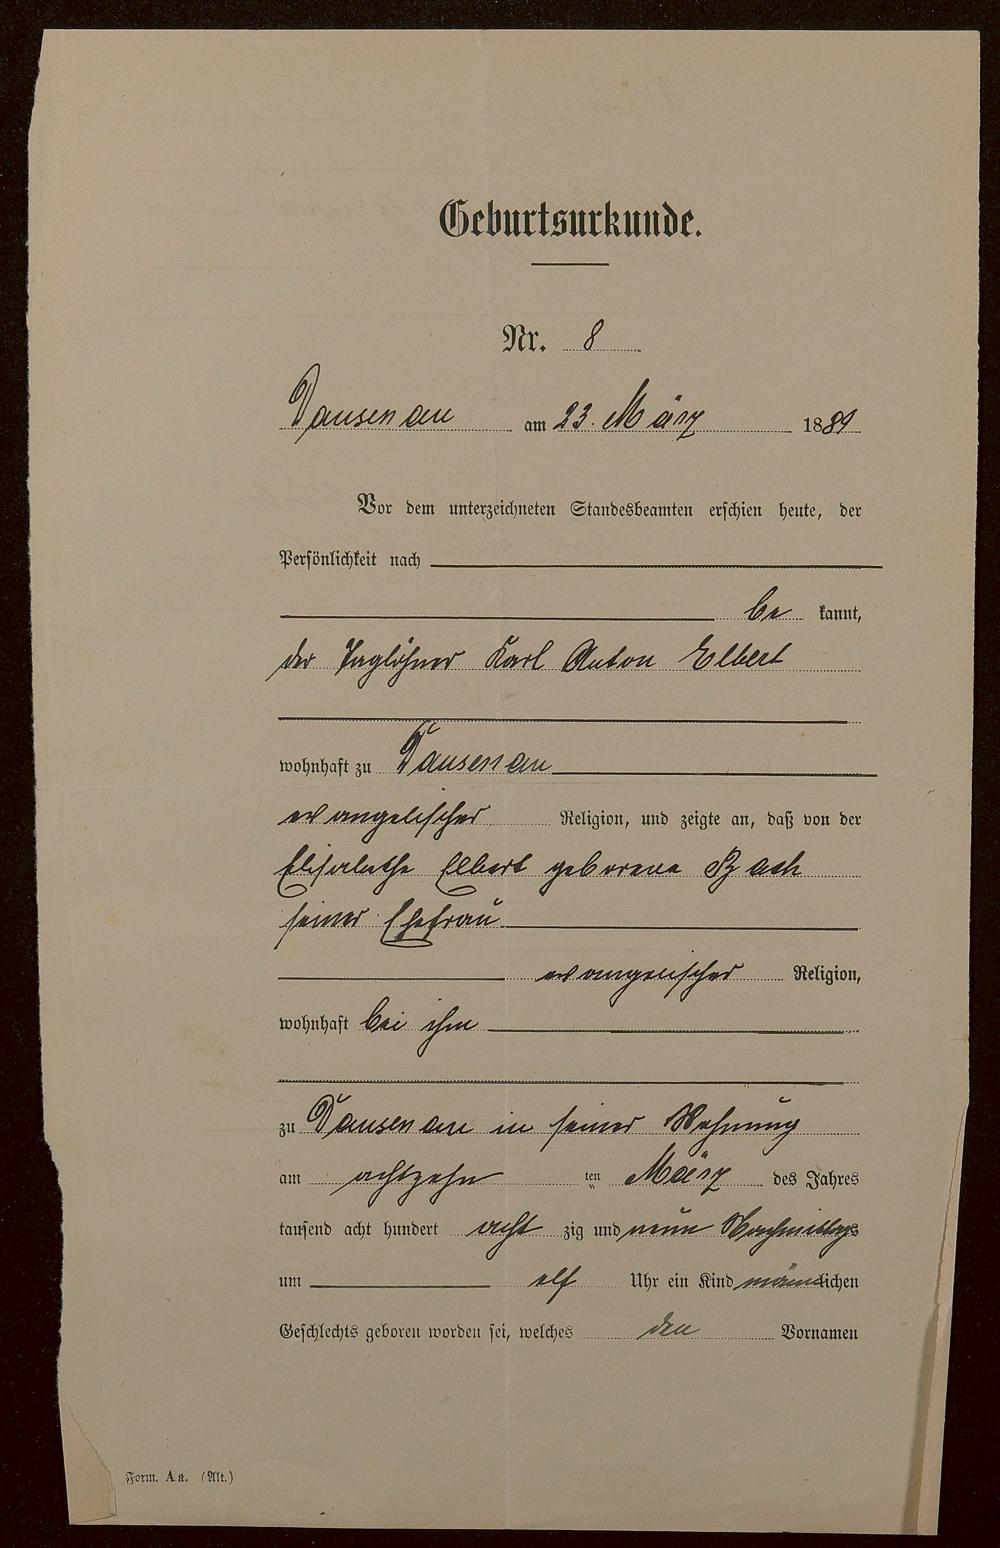 Geburtsurkunde.
Nr. 8
Dausenau am 23. März 1889
Vor dem unterzeichneten Standesbeamten erschien heute, der
Persönlichkeit nach
be kannt,
der Taglöhner Karl Anton Elbert
wohnhaft zu Dausenau
evangelischer Religion, und zeigte an, daß von der
Elisabethe Elbert geborene Bach
seiner Ehefrau
evangelischer Religion,
wohnhaft bei ihm
zu Dausenau in seiner Wohnung
am achtzehn ten März des Jahres
tausend acht hundert acht zig und neun Nachmittags
um elf Uhr ein Kind männlichen
Geschlechts geboren worden sei, welches den Vornamen
Form. Aa. (Alt.)